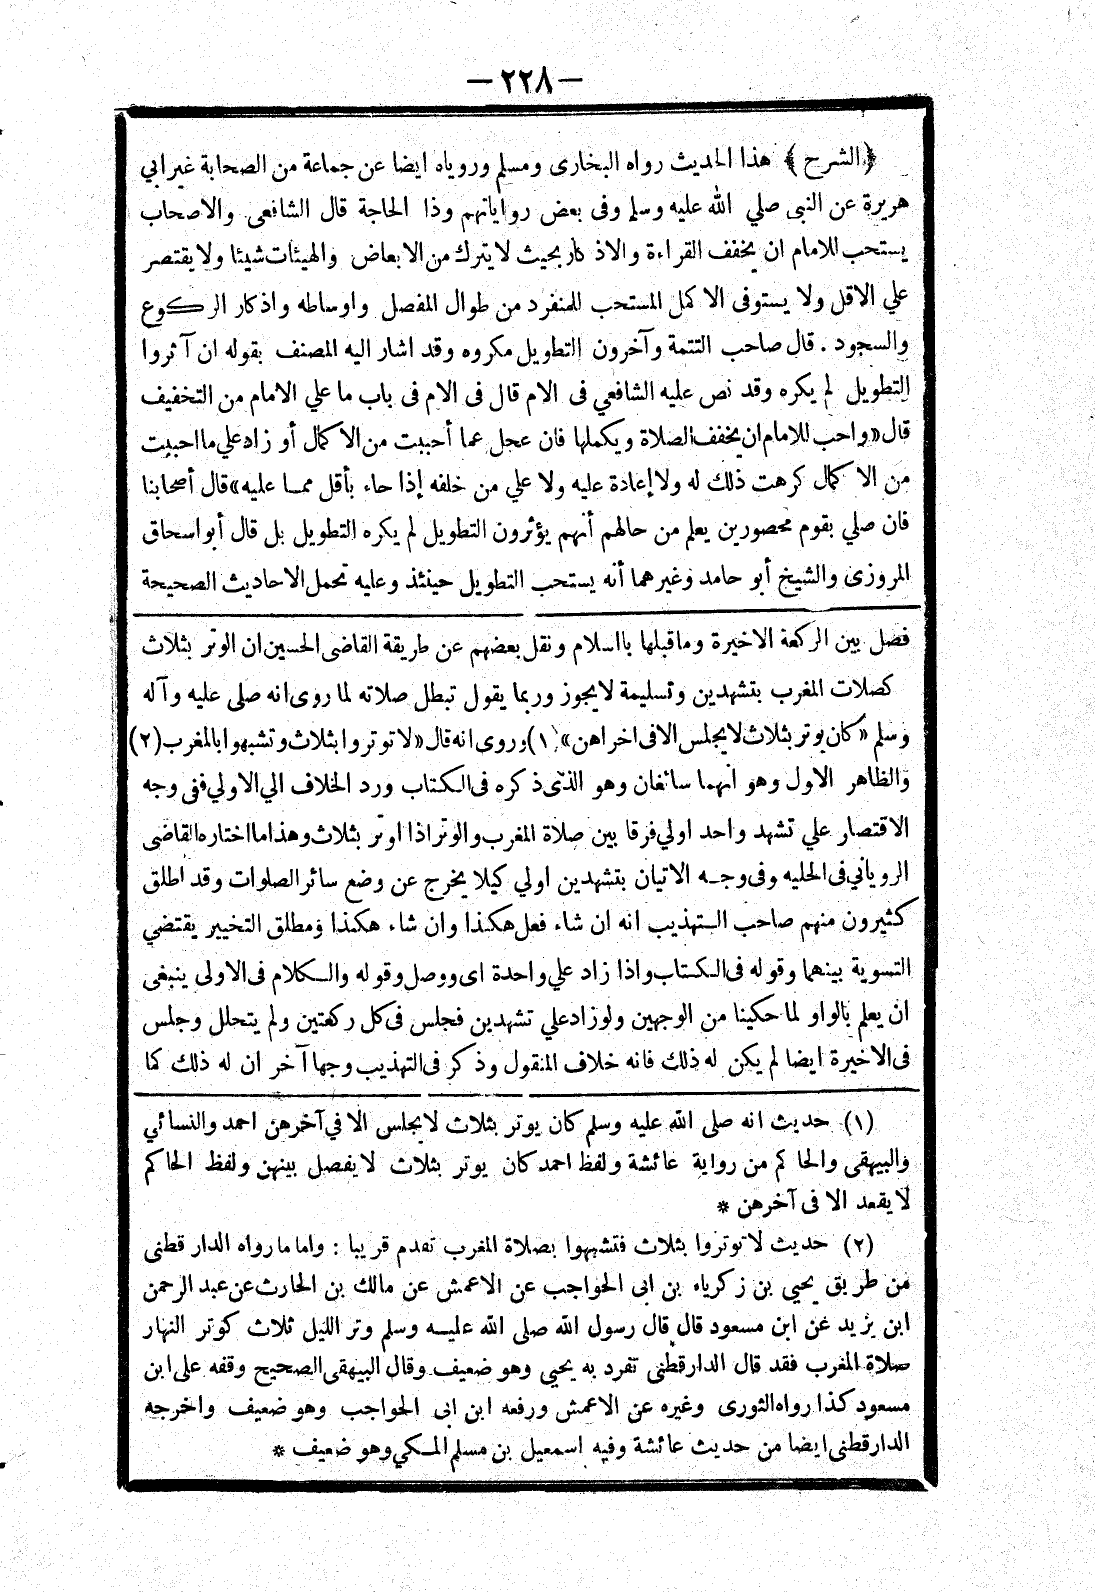 — ٢٢٨ —
﴿ الشرح ﴾ هذا الحديث رواه البخارى ومسلم وروياه ايضا عن جماعة من الصحابة غير ابي
هريرة عن النبى صلي الله عليه وسلم وفى بعض رواياتهم وذا الحاجة قال الشافعى والاصحاب
يستحب للامام ان يخفف القراءة والاذكار بحيث لا يترك من الابعاض والهيئات شيئا ولا يقتصر
علي الاقل ولا يستوفى الاكمل المستحب للمنفرد من طوال المفصل واوساطه واذكار الركوع
والسجود . قال صاحب التتمة وآخرون التطويل مكروه وقد اشار اليه المصنف بقوله ان آثروا
التطويل لم يكره وقد نص عليه الشافعي فى الام قال فى الام فى باب ما علي الامام من التخفيف
قال «واحب للامام ان يخفف الصلاة ويكملها فان عجل عما أحببت من الاكمال أو زاد علي ما احببت
من الاكمال كرهت ذلك له ولا إعادة عليه ولا علي من خلفه إذا جاء بأقل ممـا عليه» قال أصحابنا
فان صلي بقوم محصورين يعلم من حالهم أنهم يؤثرون التطويل لم يكره التطويل بل قال أبو اسحاق
المروزى والشيخ أبو حامد وغيرهما أنه يستحب التطويل حينئذ وعليه تحمل الاحاديث الصحيحة
فصل بين الركعة الاخيرة وما قبلها باالسلام ونقل بعضهم عن طريقة القاضى الحسين ان الوتر بثلاث
كصلات المغرب بتشهدين وتسليمة لا يجوز وربما يقول تبطل صلاته لما روى انه صلى عليه وآله
وسلم «كان يوتر بثلاث لا يجلس الا فى اخراهن» (١) وروى انه قال «لا توتروا بثلاث وتشبهوا بالمغرب (٢)
والظاهر الاول وهو انهما سائغان وهو الذى ذكره فى الكتاب ورد الخلاف الي الاولي ففى وجه
الاقتصار علي تشهد واحد اولي فرقا بين صلاة المغرب والوتر اذا اوتر بثلاث وهذا ما اختاره القاضى
الروياني فى الحليه وفى وجـه الاتيان بتشهدين اولي كيلا يخرج عن وضع سائر الصلوات وقد اطلق
كثيرون منهم صاحب التهذيب انه ان شاء فعل هكذا وان شاء هكذا ومطلق التخيير يقتضي
التسوية بينهما وقوله فى الكتاب واذا زاد علي واحدة اى ووصل وقوله والكلام فى الاولى ينبغى
ان يعلم بالواو لما حكينا من الوجهين ولو زاد علي تشهدين فجلس فى كل ركعتين ولم يتحلل وجلس
فى الاخيرة ايضا لم يكن له ذلك فانه خلاف المنقول وذكر فى التهذيب وجها آخر ان له ذلك كما
(١) حديث انه صلى الله عليه وسلم كان يوتر بثلاث لا يجلس الا في آخرهن احمد والنسائي
والبيهقى والحاكم من رواية عائشة ولفظ احمد كان يوتر بثلاث لا يفصل بينهن ولفظ الحاكم
لا يقعد الا فى آخرهن *
(٢) حديث لا توتروا بثلاث فتشبهوا بصلاة المغرب تقدم قريبا : واما ما رواه الدارقطنى
من طريق يحيي بن زكرياء بن ابى الحواجب عن الاعمش عن مالك بن الحارث عن عبد الرحمن
ابن يزيد عن ابن مسعود قال قال رسول الله صلى الله عليـه وسلم وتر الليل ثلاث كوتر النهار
صلاة المغرب فقد قال الدارقطنى تفرد به يحيي وهو ضعيف وقال البيهقى الصحيح وقفه على ابن
مسعود كذا رواه الثورى وغيره عن الاعمش ورفعه ابن ابى الحواجب وهو ضعيف واخرجه
الدارقطنى ايضا من حديث عائشة وفيه اسمعيل بن مسلم المكي وهو ضعيف *